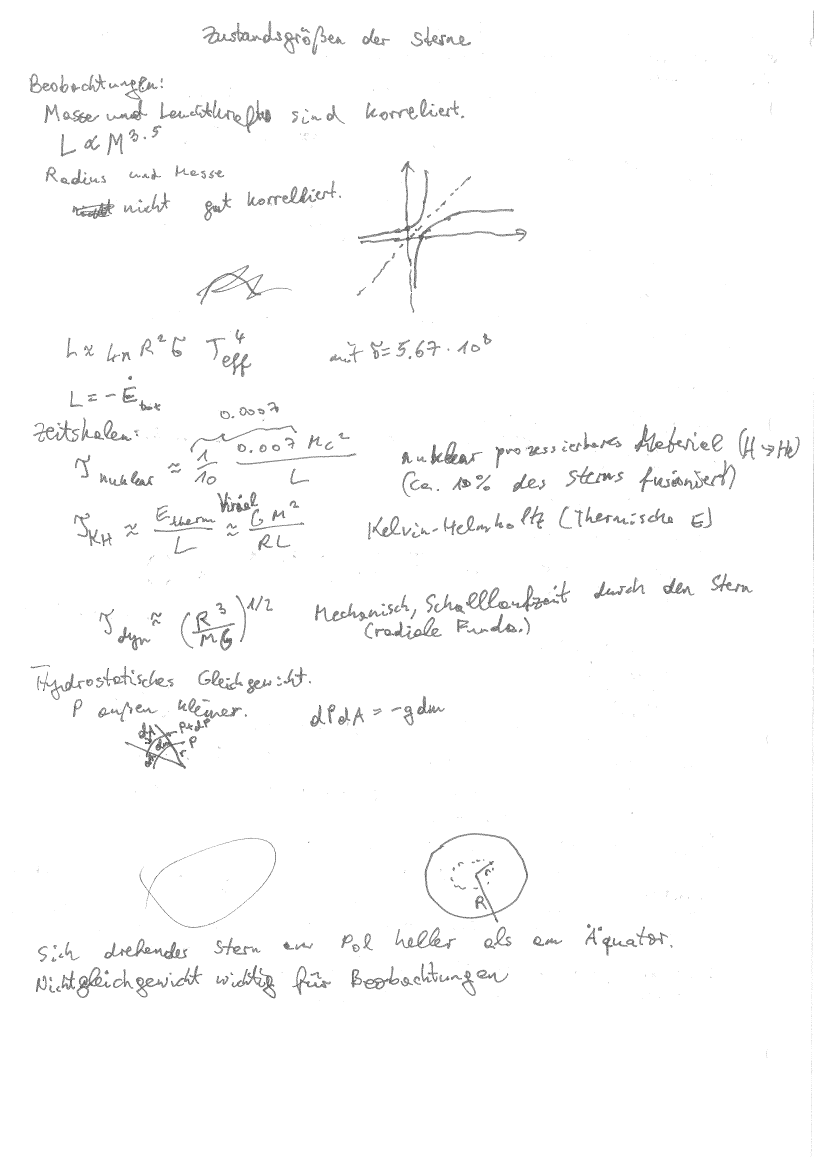 Zustandsgrößen der Sterne
Beobachtungen:
Masse und Leuchtkraft sind korreliert.
L ∝ M^3.5
Radius und Masse
nicht gut korreliert.
L ≈ 4π R² σ T_eff^4 mit σ = 5.67 · 10^8
L = - Ė_tot
Zeitskalen:
0.0007
τ_nuklear ≈ 1/10 0.007 Mc²/L nuklear prozessierbares Material (H → He)
(ca. 10% des Sterns fusioniert)
τ_KH ≈ E_therm/L ≈ GM²/RL Kelvin-Helmholtz (Thermische E)
Virial
τ_dyn ≈ (R³/MG)^1/2 Mechanisch, Schalllaufzeit durch den Stern
(radiale Funda.)
Hydrostatisches Gleichgewicht.
P außen kleiner. dPdA = -gdm
dA P+dP
dm P
dr r
r
R
Sich drehendes Stern am Pol heller als am Äquator.
Nichtgleichgewicht wichtig für Beobachtungen